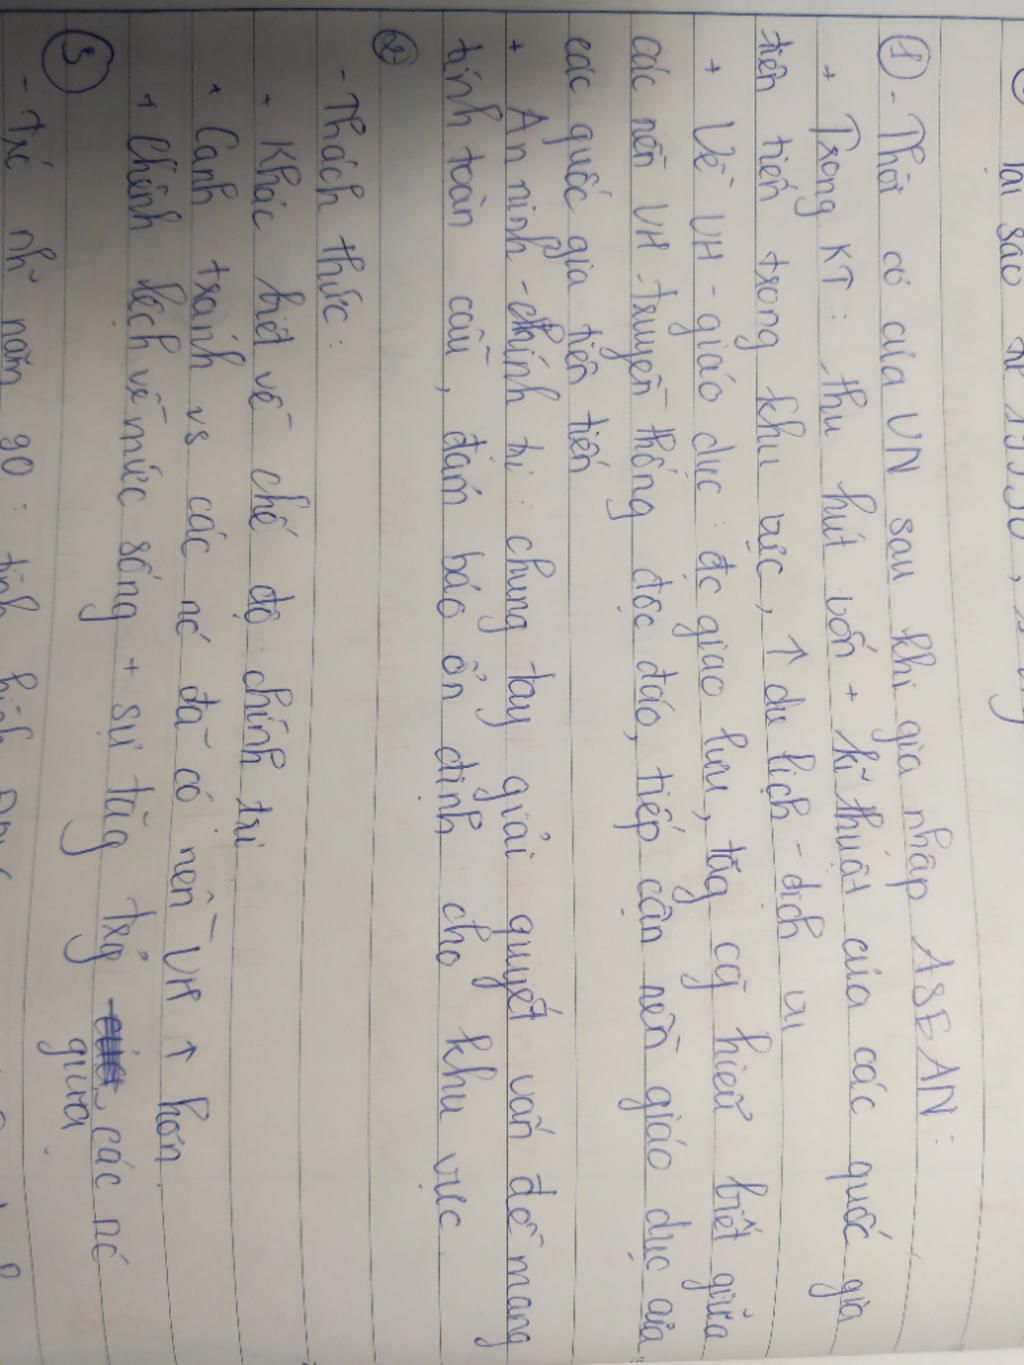 lại sao
① - Thời cơ của VN sau khi gia nhập ASEAN:
+ Trong KT: thu hút vốn + kĩ thuật của các quốc gia
tiên tiến trong khu vực, ↑ du lịch - dịch vụ
+ Về VH - giáo dục: đc giao lưu, tăg cg hiểu biết giữa
các nền VH truyền thống độc đáo, tiếp cận nền giáo dục của
các quốc gia tiên tiến
+ An ninh - chính trị: chung tay giải quyết vấn đề mang
tính toàn cầu, đảm bảo ổn định cho khu vực.
②
- Thách thức:
+ Khác biệt về chế độ chính trị
+ Cạnh tranh vs các nc đã có nền VH ↑ hơn.
+ Chênh lệch về mức sống + sự tăg trg giữa các nc
③
- Từ nh~ năm 90: tình hình